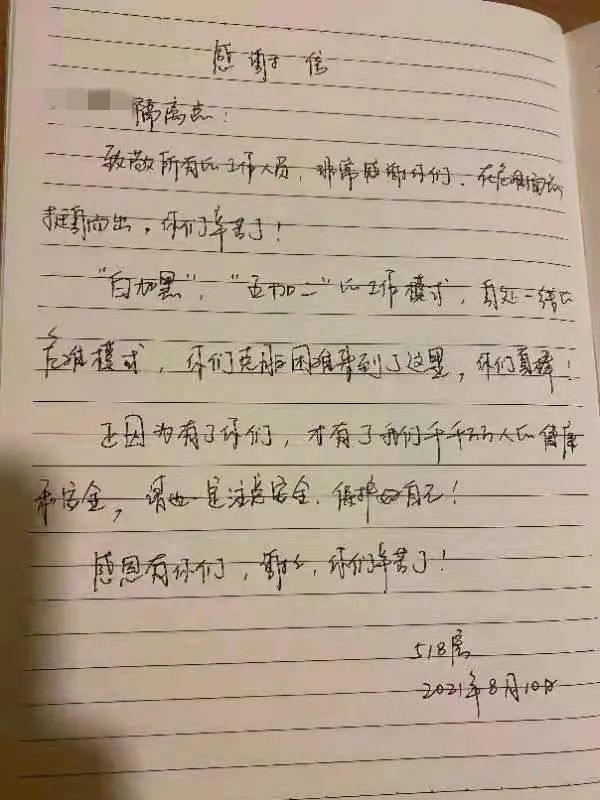 感谢信
隔离点:
致敬所有的工作人员,非常感谢你们,在危难面前
挺身而出,你们辛苦了!
"白加黑","五加二"的工作模式,身处一线的
危难模式,你们克服困难来到了这里,你们真棒!
正因为有了你们,才有了我们千千万万人的健康
和安全,请也一定注意安全,保护好自己!
感恩有你们,谢谢,你们辛苦了!
518房
2021年8月10日